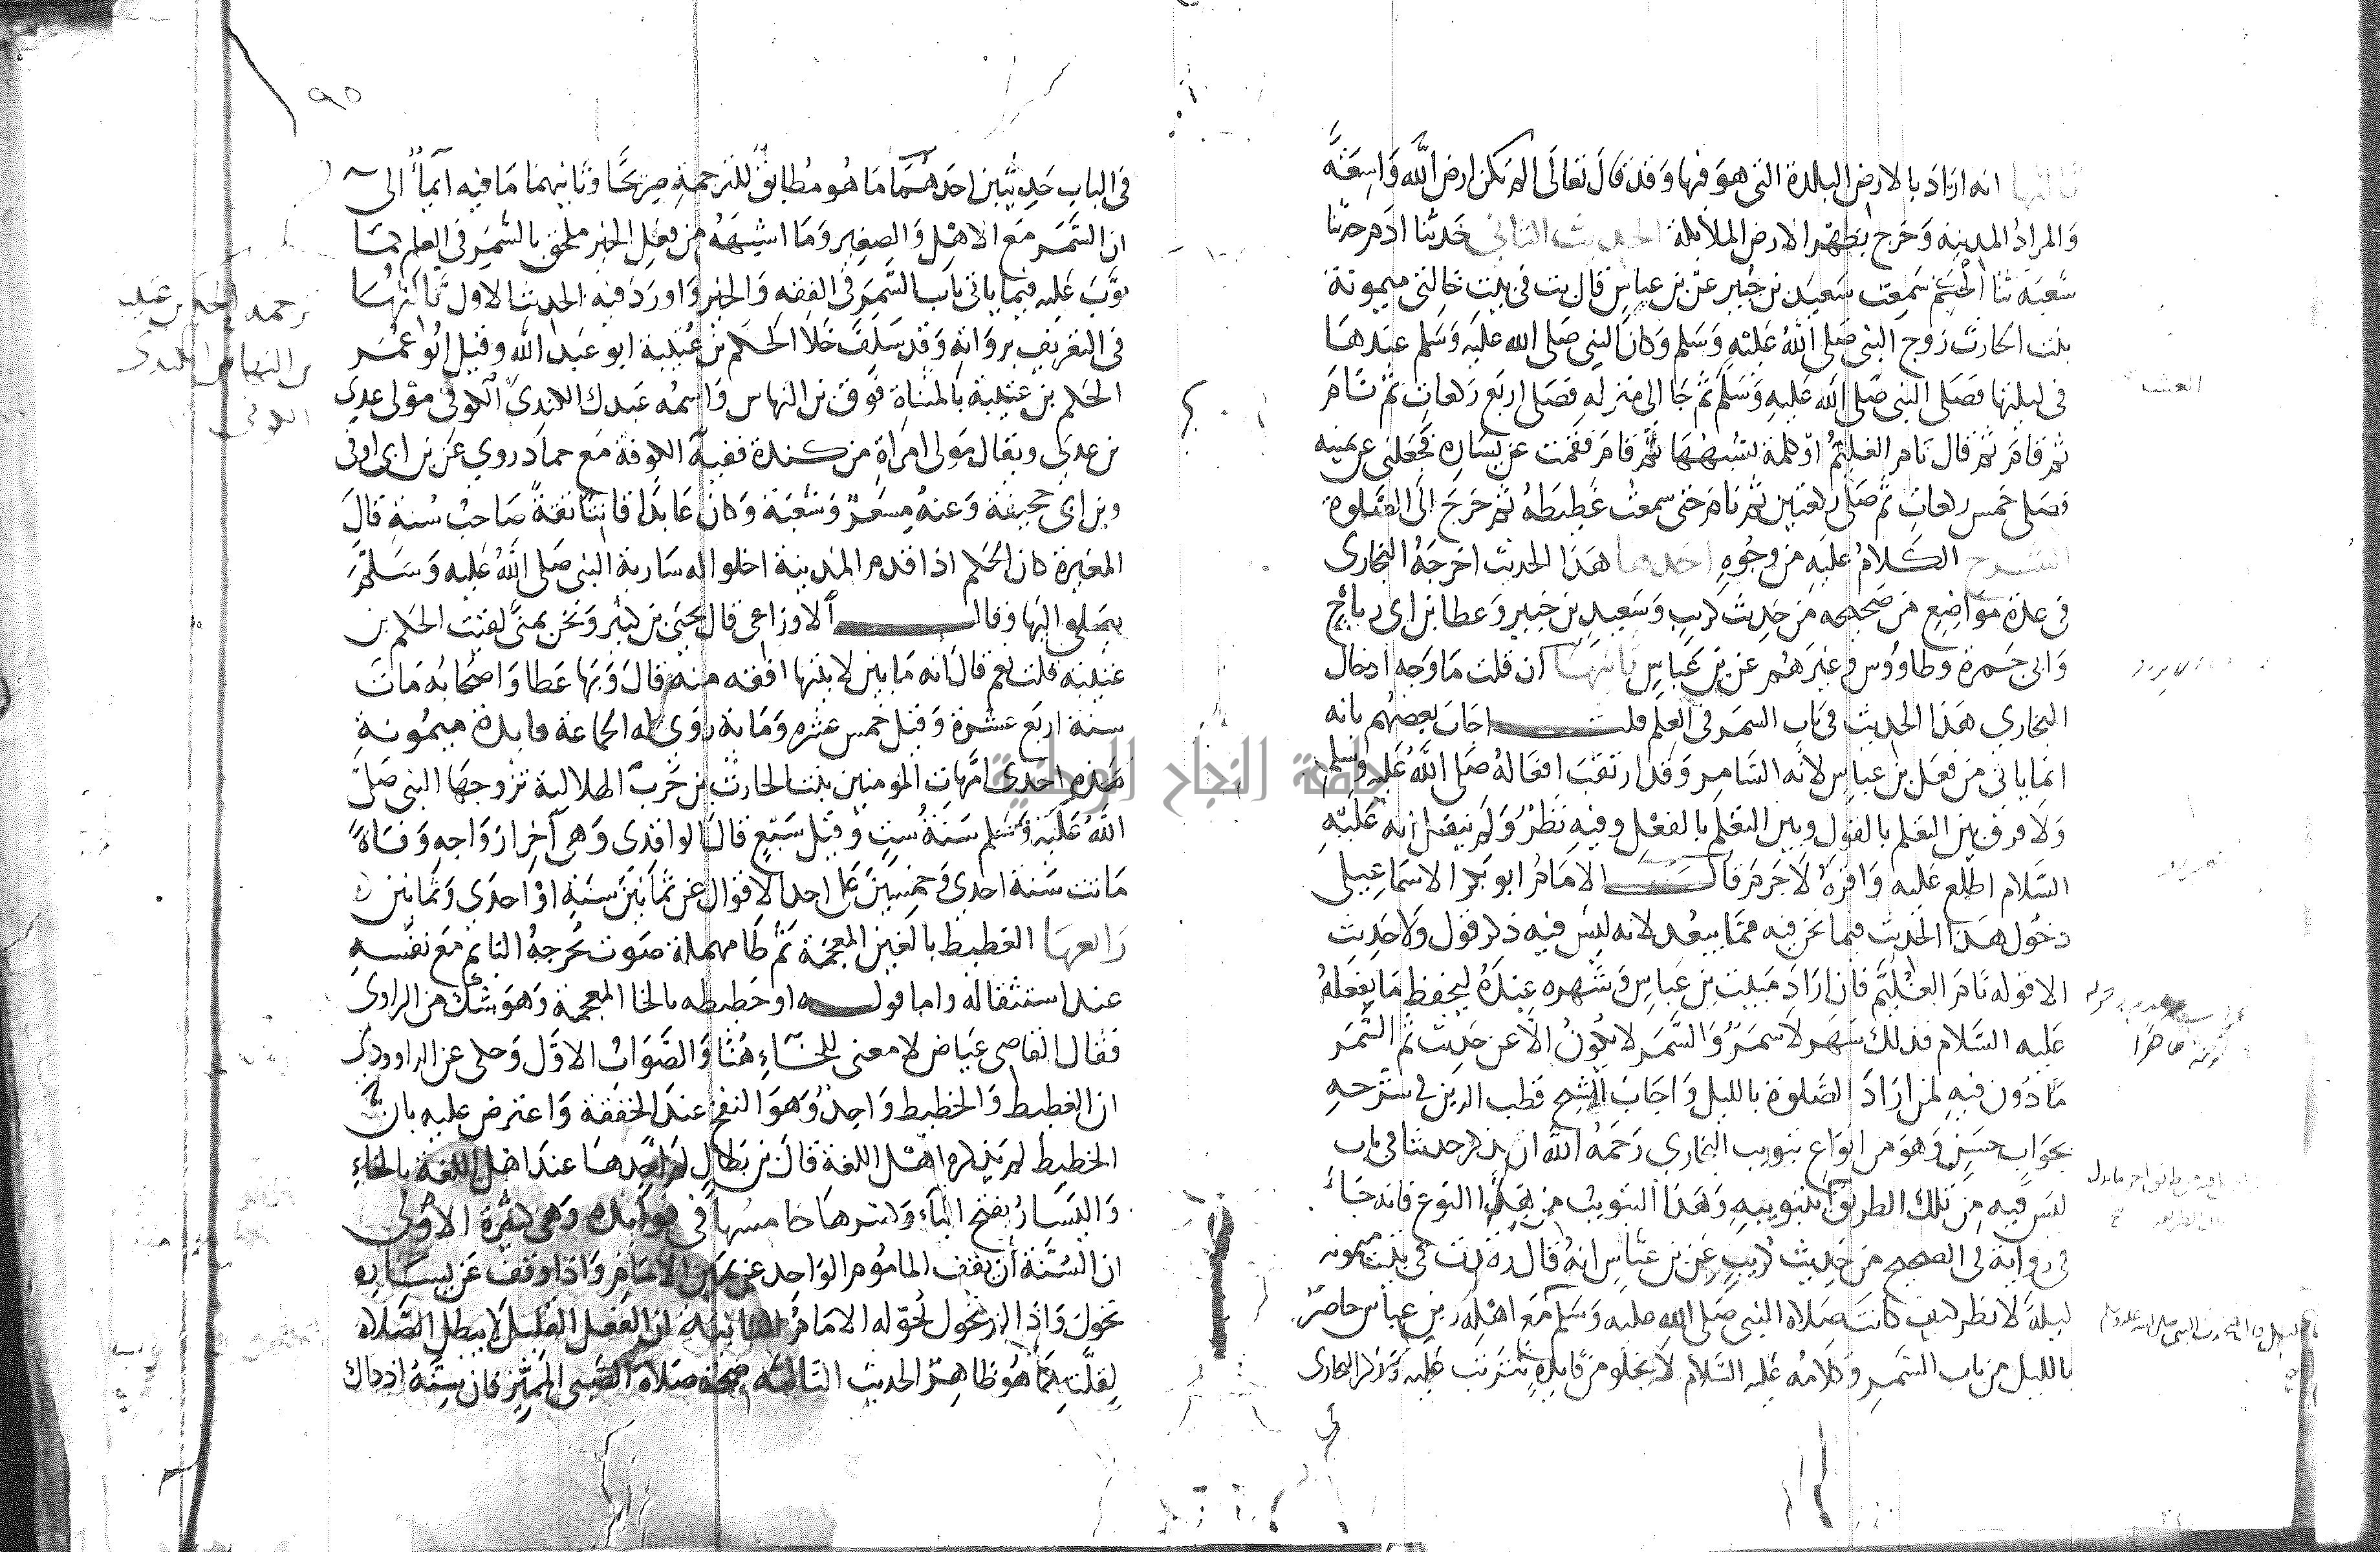 ثالثها انه اراد بالارض البلدة التي هو فيها وقد قال تعالى الم تكن ارض الله واسعة
والمراد المدينة وخرج بظهر الارض الملائكة الحديث الثاني حدثنا ادم حدثنا
شعبة ثنا الحكم سمعت سعيد بن جبير عن بن عباس قال بت في بيت خالتي ميمونة
بنت الحارث زوج النبي صلى الله عليه وسلم وكان النبي صلى الله عليه وسلم عندها
في ليلتها فصلى النبي صلى الله عليه وسلم ثم جا الى منزله فصلى اربع ركعات ثم نام
ثم قام ثم قال نام الغليم او كلمة تشبهها ثم قام فقمت عن يساره فجعلني عن يمينه
فصلى خمس ركعات ثم صلى ركعتين ثم نام حتى سمعت غطيطه ثم خرج الى الصلوة
الشرح الكلام عليه من وجوه احدها هذا الحديث اخرجه البخاري
في عدة مواضع من صحيحه من حديث كريب وسعيد بن جبير وعطا بن ابي رباح
وابي جمرة وطاووس وغيرهم عن بن عباس ثانيها ان قلت ما وجه ادخال
البخاري هذا الحديث في باب السمر في العلم قلت اجاب بعضهم بانه
انما ياتي من فعل بن عباس لانه السامر وقد ارتقب افعاله صلى الله عليه وسلم
ولا فرق بين التعلم بالقول وبين التعلم بالفعل وفيه نظر ولم ينقل انه عليه
السلام اطلع عليه واقره لا جرم قال الامام ابو بكر الاسماعيلي
دخول هذا الحديث فيما نحن فيه مما يبعد لانه ليس فيه ذكر قول ولا حديث
الا قوله نام الغليم فان اراد مبيت بن عباس وسهره عنده ليحفظ ما يفعله
عليه السلام فذلك سهر لا سمر والسمر لا يكون الا عن حديث ثم السمر
مادون فيه لمن اراد الصلوة بالليل واجاب الشيخ قطب الدين في شرحه
بجواب حسن وهو من انواع تبويب البخاري رحمه الله ان يذكر حديثا في باب
ليس فيه من تلك الطريق تبويبه وهذا التبويب من هذا النوع فانه جاء
في رواية في الصحيح من حديث كريب عن بن عباس انه قال رقدت في بيت ميمونه
ليلة لانظر كيف كانت صلاة النبي صلى الله عليه وسلم مع اهله بن عباس حاضر
بالليل من باب السمر وكلامه عليه السلام لا يخلو من فايدة تترتب عليه وذكر البخاري
العشا
٩٥
في الباب حديثين احدهما ما هو مطابق للترجمة صريحا وثانيهما ما فيه ايماء الى
ان السمر مع الاهل والضيف وما اشبهه من فعل الخير ملحق بالسمر في العلم كما
بوب عليه فيما ياتي باب السمر في الفقه والخير واورد فيه الحديث الاول ثالثها
في التعريف برواته وقد سلف خلا الحكم بن عتيبة ابو عبد الله وقيل ابو عمر
الحكم بن عتيبة بالمثناة فوق بن النهاس واسمه عبدك الكندي الكوفي مولى عدي
بن عدي ويقال مولى امراة من كندة فقيه الكوفة مع حماد روي عن بن ابي اوفى
وبن ابي جحيفة وعنه مسعر وشعبة وكان عابدا قانتا ثقة صاحب سنة قال
المغيرة كان الحكم اذا قدم المدينة اخلوا له سارية النبي صلى الله عليه وسلم
يصلي اليها وقال الاوزاعي قال يحيى بن كثير ونحن بمنى لقيت الحكم بن
عتيبة قلت نعم قال انه ما بين لابتيها افقه منه قال وبها عطا واصحابه مات
سنة اربع عشرة وقيل خمس عشره ومائة روى له الجماعة فايدة ميمونة
هذه احدى امهات المومنين بنت الحارث بن حرب الهلالية تزوجها النبي صلى
الله عليه وسلم سنة ست وقيل سبع قال الواقدي وهي اخر ازواجه وفاة
ماتت سنة احدي وخمسين على احد الاقوال عن ثمانين سنة او احدي وثمانين
رابعها الغطيط بالغين المعجمة ثم طا مهملة صوت يخرجه النايم مع نفسه
عند استثقاله واما قوله او خطيطه بالخا المعجمة وهو شك من الراوي
فقال القاضي عياض لا معنى للخاء هنا والصواب الاول وحكى عن الداوودي
ان الغطيط والخطيط واحد وهو النفخ عند الخفقة واعترض عليه بان
الخطيط لم يذكره اهل اللغة قال بن بطال لم اجدها عند اهل اللغة بالخاء
واليسار بفتح الياء وكسرها خامسها في فوايده وهي كثيرة الاولى
ان السنة ان يقف الماموم الواحد عن يمين الامام واذا وقف عن يساره
تحول واذا لم يتحول حوله الامام الثانية ان الفعل القليل لا يبطل الصلاة
لقلته كما هو ظاهر الحديث الثالثة صحة صلاة الصبي المميز فان سنه اذ ذاك
ترجمة الحكم بن عتيبة
بن النهاس الكندي
الكوفي
حلقة النجاح الوطنية